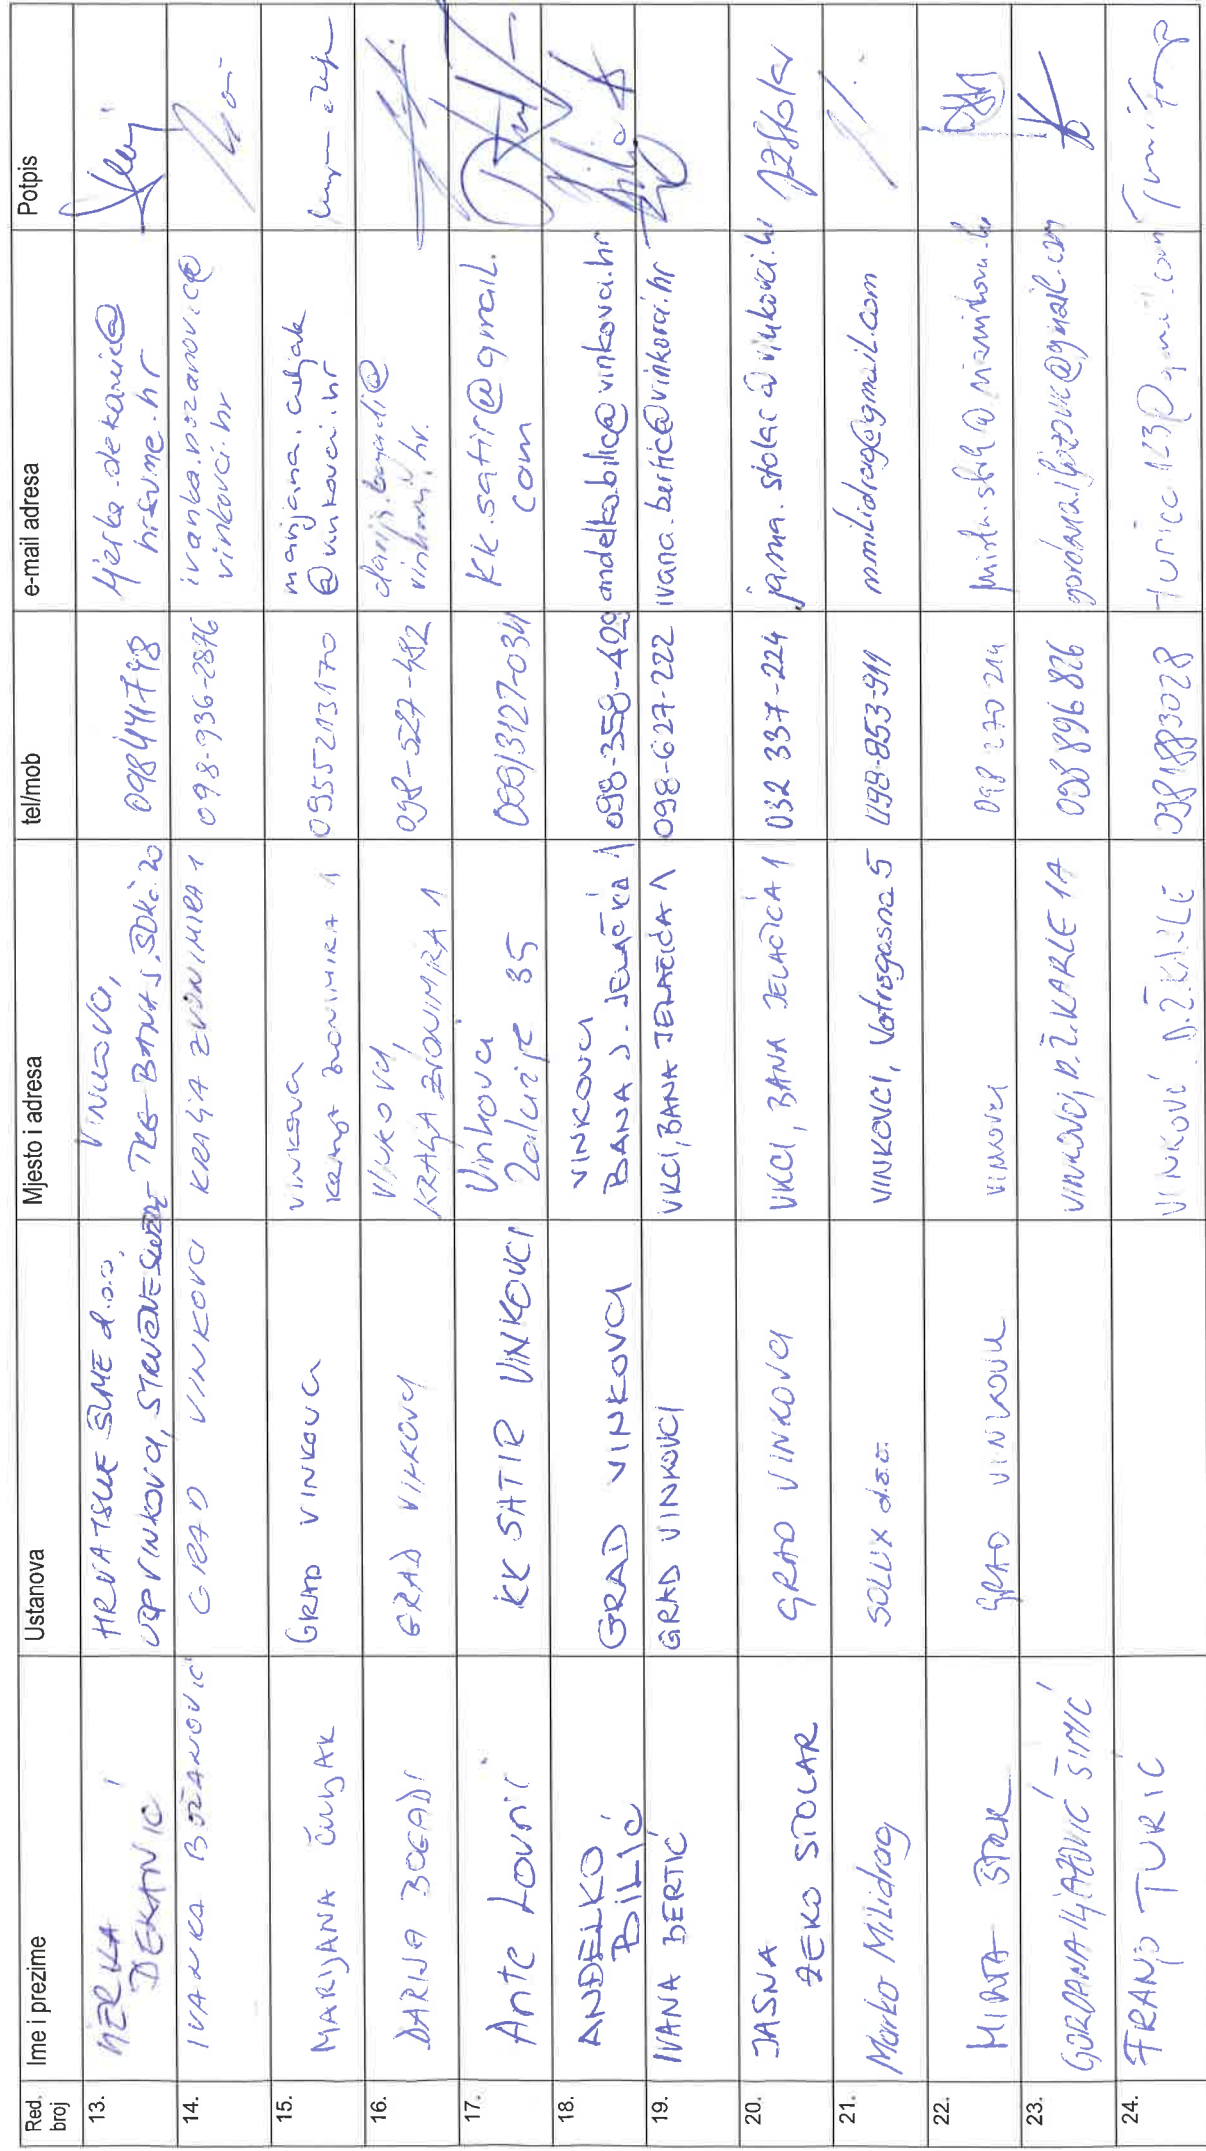 Red. broj
Ime i prezime
Ustanova
Mjesto i adresa
tel/mob
e-mail adresa
Potpis
13.
DEKANIĆ
HRVATSKE ŠUME d.o.o.
UŠP VINKOVCI, STRUČNE SLUŽBE
VINKOVCI,
TRG BANA J. ŠOKČ. 20
098441748
hrsume.hr
14.
IVANKA BOŽANOVIĆ
GRAD VINKOVCI
KRALJA ZVONIMIRA 1
098-936-2876
ivanka.bozanovic@
vinkovci.hr
15.
MARIJANA ČULJAK
GRAD VINKOVCI
VINKOVCI
KRALJA ZVONIMIRA 1
0955213170
marijana.culjak
@vinkovci.hr
16.
DARIJA BOGADI
GRAD VINKOVCI
VINKOVCI,
KRALJA ZVONIMIRA 1
098-527-482
darija.bogadi@
vinkovci.hr.
17.
Ante Lovrić
KK SATIR VINKOVCI
Vinkovci
Zalužje 35
099/3127-034
kk.satir@gmail.
com
18.
ANĐELKO
BILIĆ
GRAD VINKOVCI
VINKOVCI
BANA J. JELAČIĆA 1
098-358-429
andelko.bilic@vinkovci.hr
19.
IVANA BERTIĆ
GRAD VINKOVCI
VKCI, BANA JELAČIĆA 1
098-627-222
ivana.bertic@vinkovci.hr
20.
JASNA
ZEKO STOLAR
GRAD VINKOVCI
VKCI, BANA JELAČIĆA 1
032 337-224
jasna.stolar@vinkovci.hr
21.
Marko Milidrag
SOLUX d.o.o.
VINKOVCI, Vatrogasna 5
098-853-911
mmilidrag@gmail.com
22.
MIRTA ŠTRK
GRAD VINKOVCI
VINKOVCI
098 270 214
23.
GORDANA ILJAZOVIĆ ŠIMIĆ
VINKOVCI, D. Ž. KARLE 1A
098 896 826
gordana.iljazovic@gmail.com
24.
FRANJO TURIĆ
VINKOVCI D. Ž. KARLE
0981883028
Turić Franjo